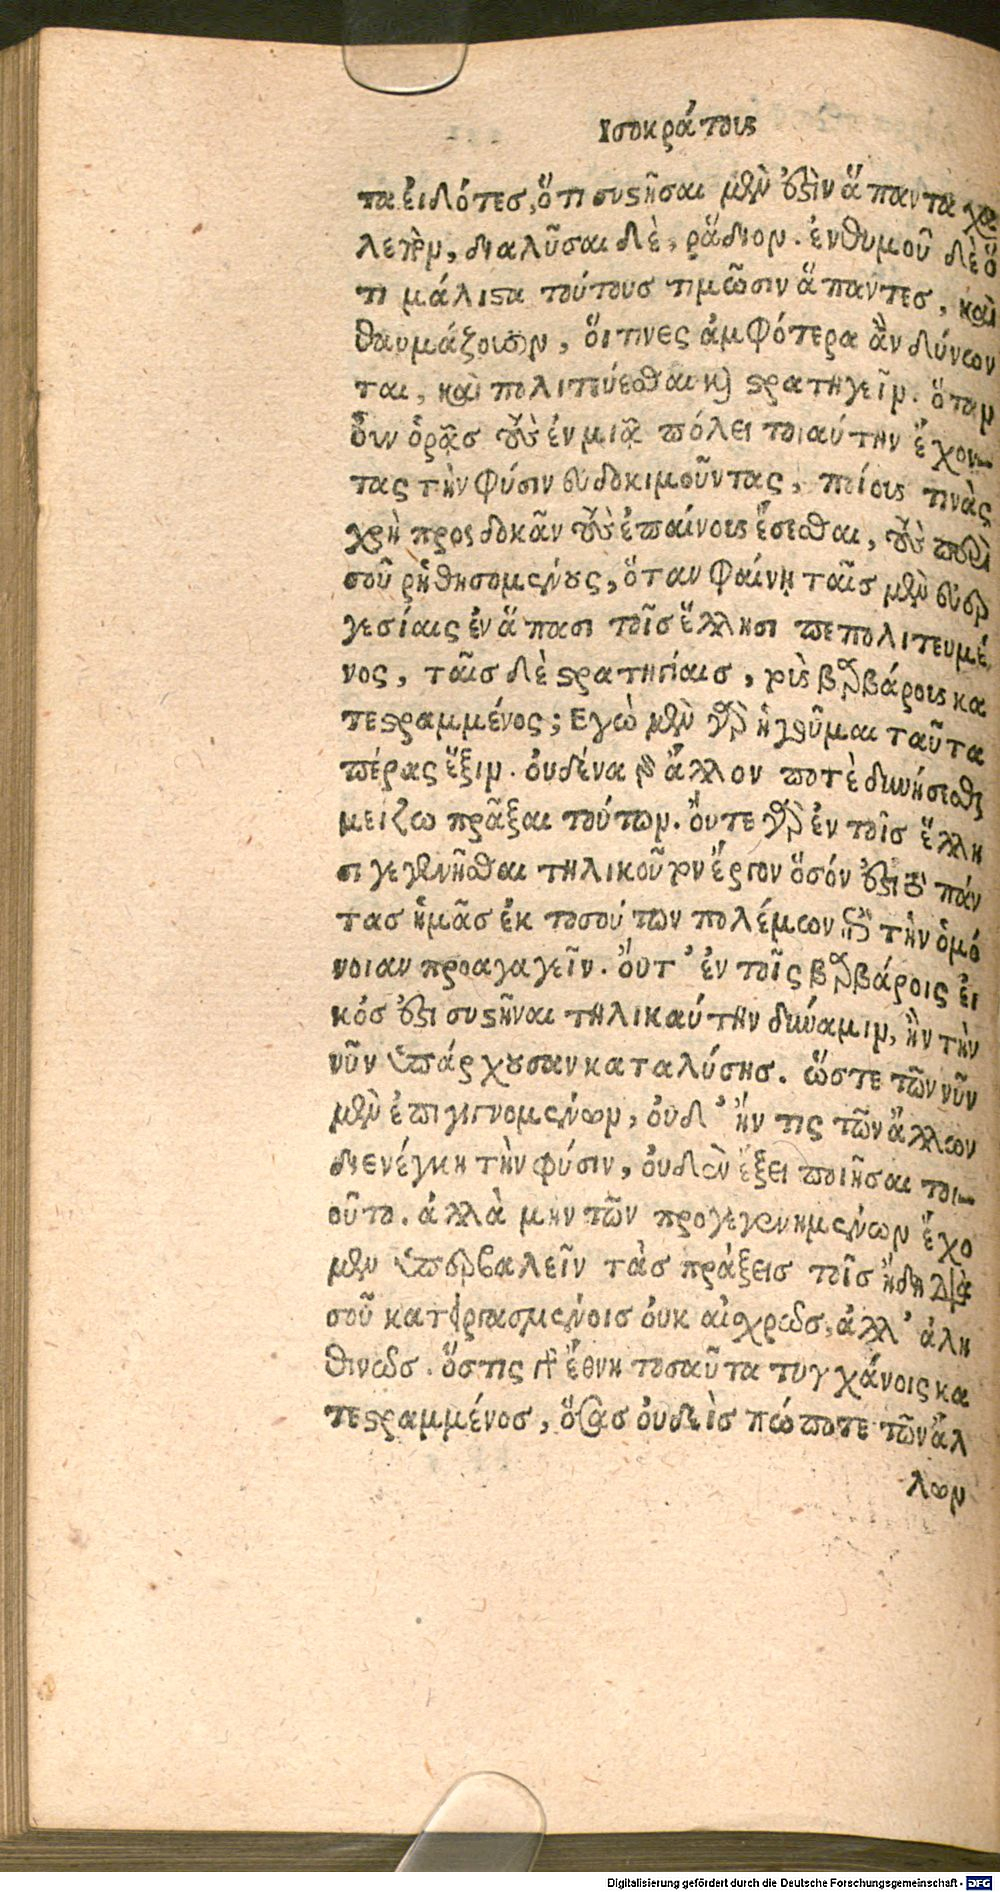 Ισοκράτους
τα ἐιδότες, ὅτι συστῆσαι μὲν ἐστὶν ἅπαντα χα
λεπὸν, διαλῦσαι δὲ, ῥᾴδιον. ἐνθυμοῦ δὲ ὅ
τι μάλιστα τούτους τιμῶσιν ἅπαντες, καὶ
θαυμάζουσιν, ὅιτινες ἀμφότερα ἂν δύνων
ται, καὶ πολιτεύεσθαι καὶ στρατηγεῖν. ὅταν
οὖν ὁρᾷς τοὺς ἐν μιᾷ πόλει τοιαύτην ἔχον-
τας τὴν φύσιν εὐδοκιμοῦντας, ποίους τινὰς
χρὴ προσδοκᾶν τοὺς ἐπαίνους ἔσεσθαι, τοὺς περὶ
σοῦ ῥηθησομένους, ὅταν φαίνῃ ταῖς μὲν εὐερ
γεσίαις ἐν ἅπασι τοῖς ἕλλησι πεπολιτευμέ
νος, ταῖς δὲ στρατηγίαις, τοὺς βαρβάρους κα
τεστραμμένος; Εγὼ μὲν γὰρ ἡγοῦμαι ταῦτα
πέρας ἕξιν. ὀυδένα γὰρ ἄλλον ποτὲ δυνήσεσθαι
μείζω πρᾶξαι τούτων. ὄυτε γὰρ ἐν τοῖς ἕλλη
σι γεγενῆσθαι τηλικοῦτον ἔργον ὅσόν ἐστι τὸ πάν
τας ἡμᾶς ἐκ τοσούτων πολέμων ἐπὶ τὴν ὁμό
νοιαν προαγαγεῖν. ὄυτ’ ἐν τοῖς βαρβάροις ἐι
κός ἐστι συστῆναι τηλικαύτην δύναμιν, ἢν τὴν
νῦν ὑπάρχουσαν καταλύσῃς. ὥστε τῶν νῦν
μὲν ἐπιγιγνομένων, ὀυδ’ ἤν τις τῶν ἄλλων
διενέγκῃ τὴν φύσιν, ὀυδὲν ἕξει ποιῆσαι τοι-
οῦτο. ἀλλὰ μὴν τῶν προγεγενημένων ἔχο
μεν ὑπερβαλεῖν τὰς πράξεις τοῖς ἤδη διὰ
σοῦ κατειργασμένοις ὀυκ αἰσχρῶς, ἀλλ’ ἀλη
θινῶς. ὅστις γὰρ ἔθνη τοσαῦτα τυγχάνοις κα
τεστραμμένος, ὅσας ὀυδεὶς πώποτε τῶν ἄλ
λων